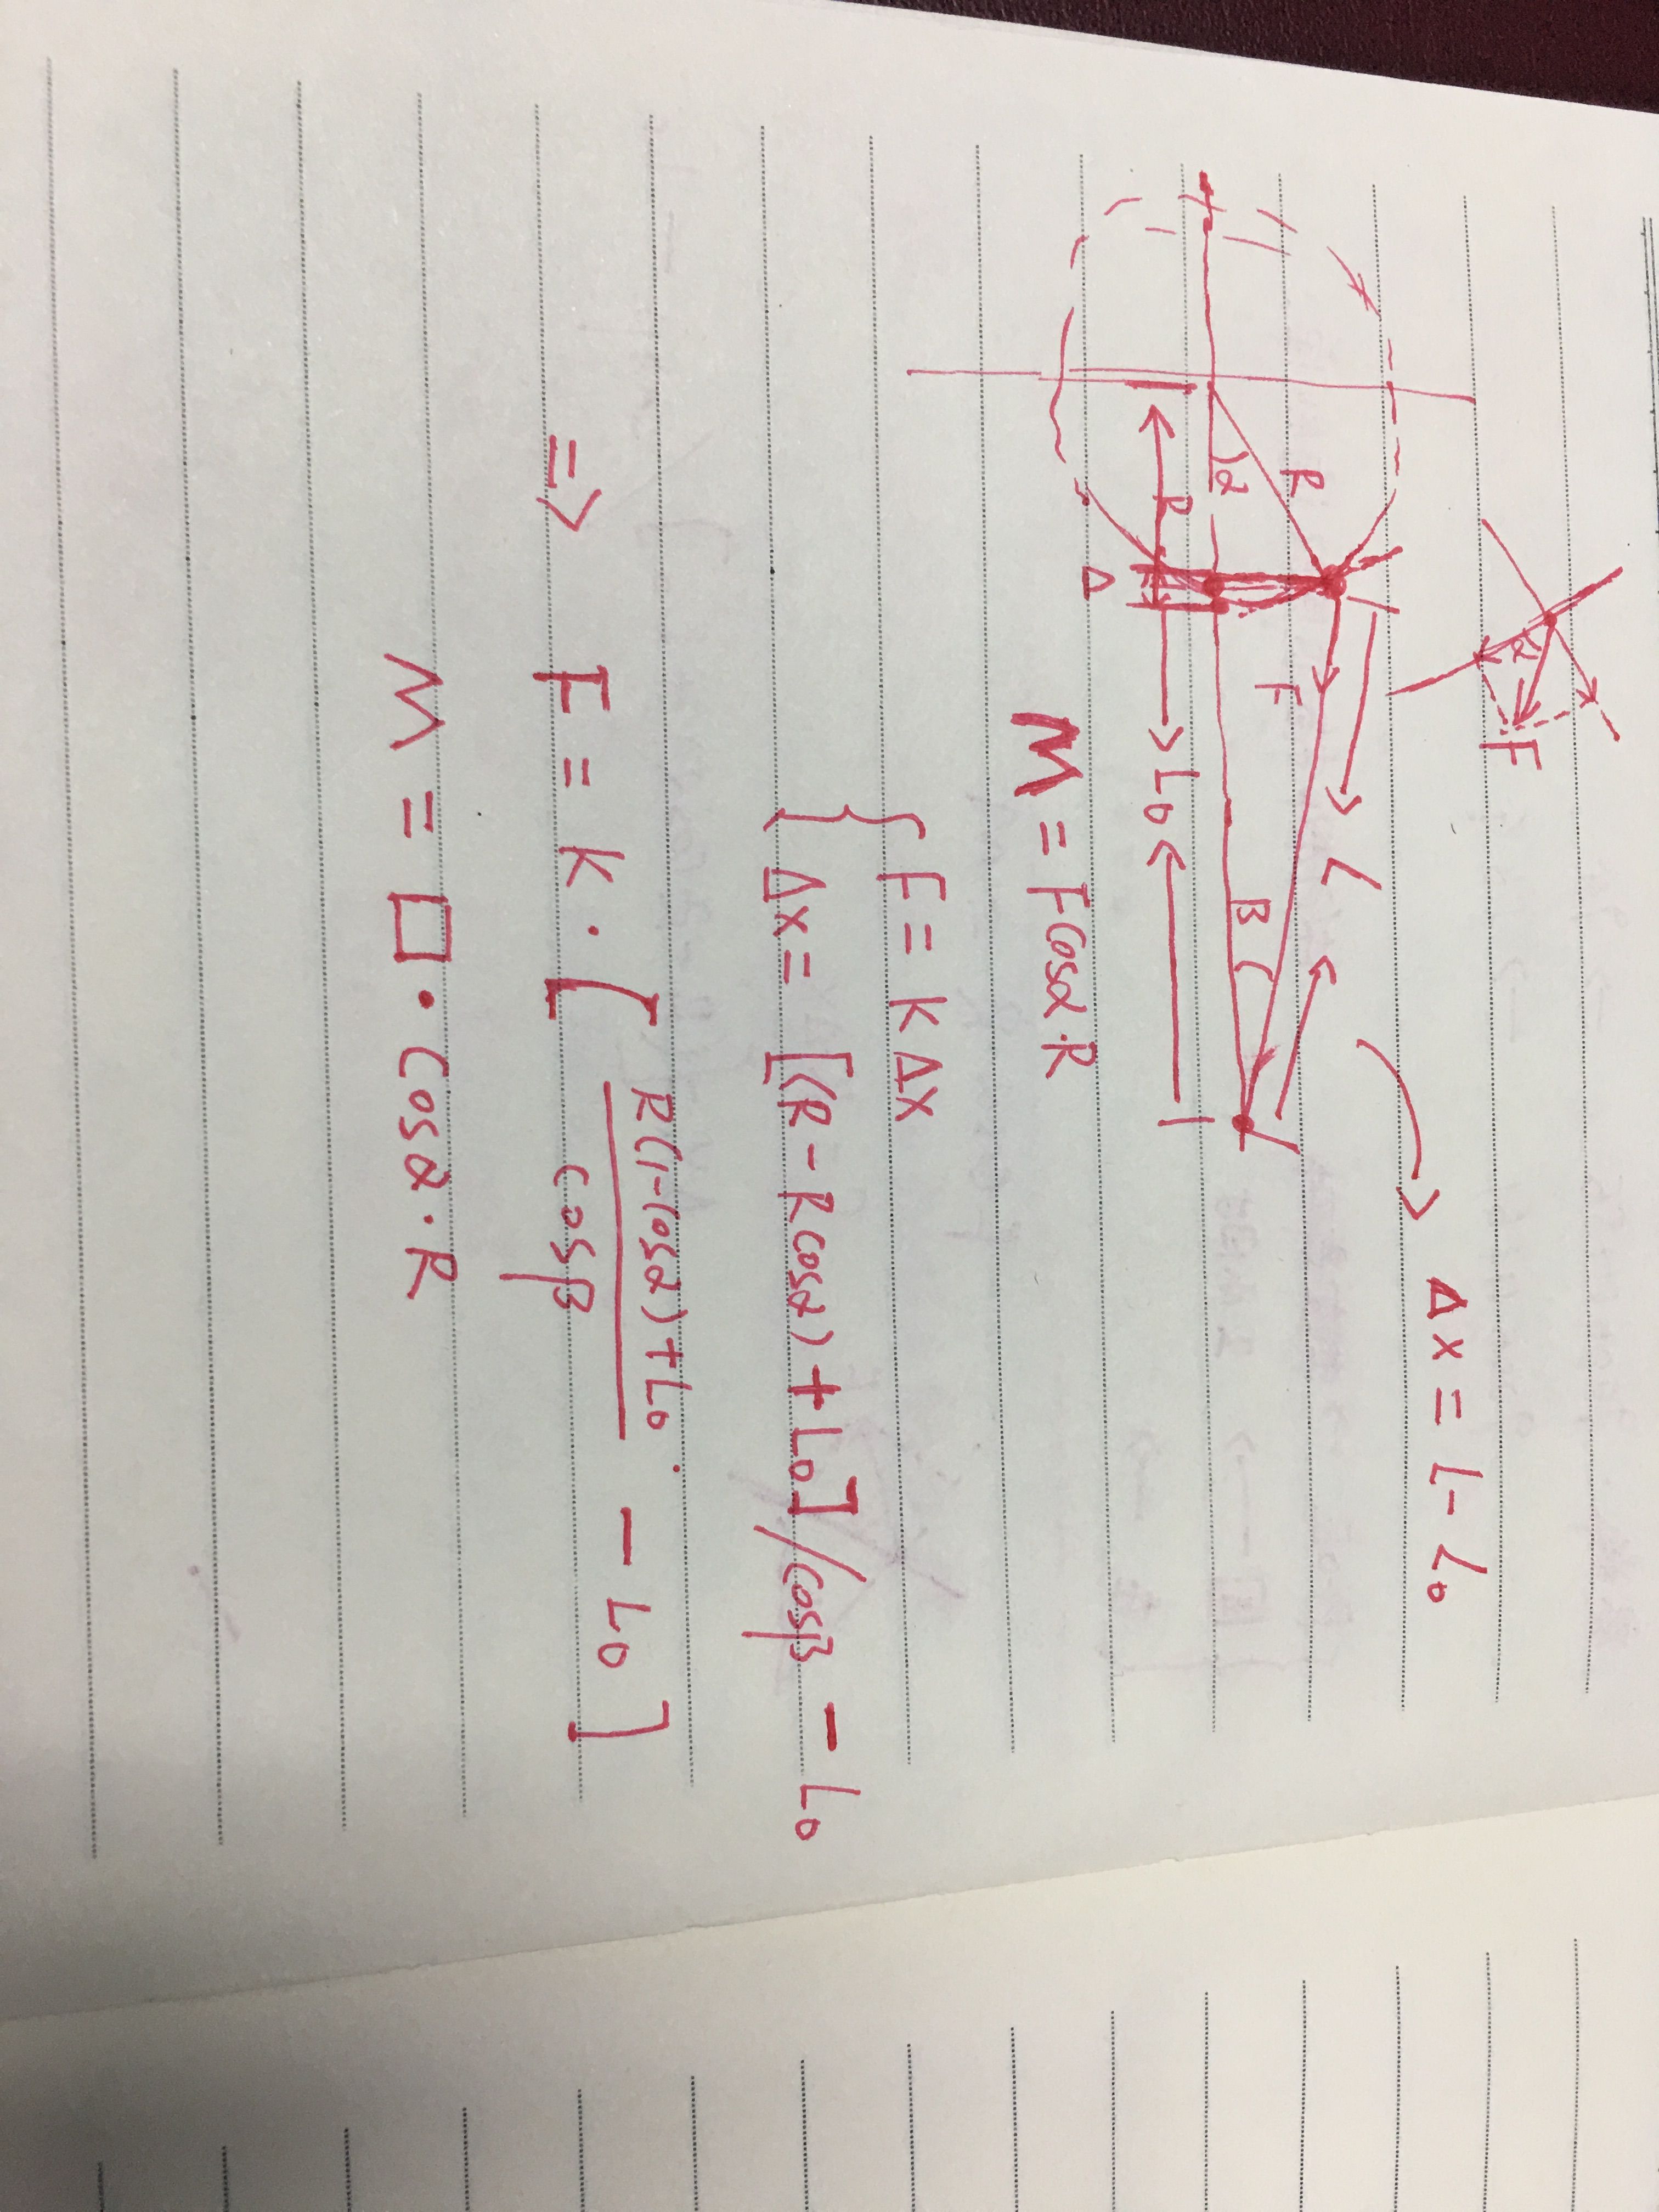 α F
Δx = L - L₀
R L
α F β
R L₀
Δ
M = Fcosα·R
{ F = KΔx
Δx = [(R - Rcosα) + L₀]/cosβ - L₀
=> F = K · [ R(1-cosα)+L₀ / cosβ - L₀ ]
M = □ · cosα · R